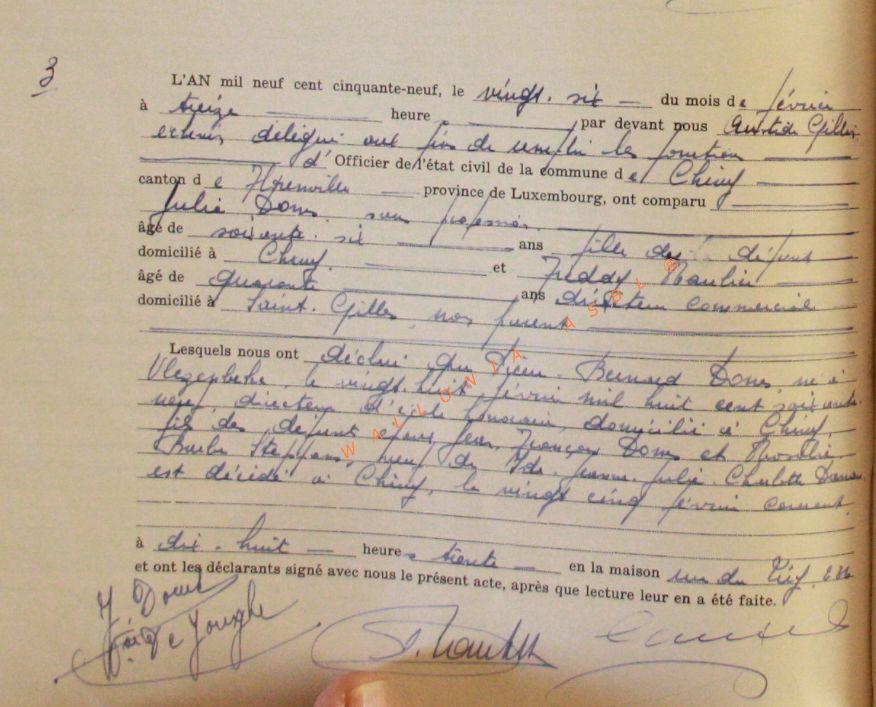 3
L'AN mil neuf cent cinquante-neuf, le vingt-six du mois de février
à treize heure par devant nous Gillet
échevin délégué aux fins de remplir les fonctions
d' Officier de l'état civil de la commune de Chiny
canton d e Florenville province de Luxembourg, ont comparu
Julie Doms, sans profession
âgé de soixante-six ans fille du défunt
domicilié à Chiny, et Freddy
âgé de quarante ans directeur commercial
domicilié à Saint-Gilles, non parent
Lesquels nous ont déclaré que Pierre Bernard Doms, né à
Vlezenbeke, le vingt-huit février mil huit cent soixante-
neuf, directeur d'école honoraire, domicilié à Chiny,
fils des défunts époux Jean François Doms et Rosalie
Barbe Stephans, veuf de Ida Jeanne Julie Charlotte
est décédé à Chiny, le vingt cinq février courant
à dix-huit heure s trente en la maison rue du
et ont les déclarants signé avec nous le présent acte, après que lecture leur en a été faite.
J. Doms
De Jonghe
WALLONIA ASBL ©